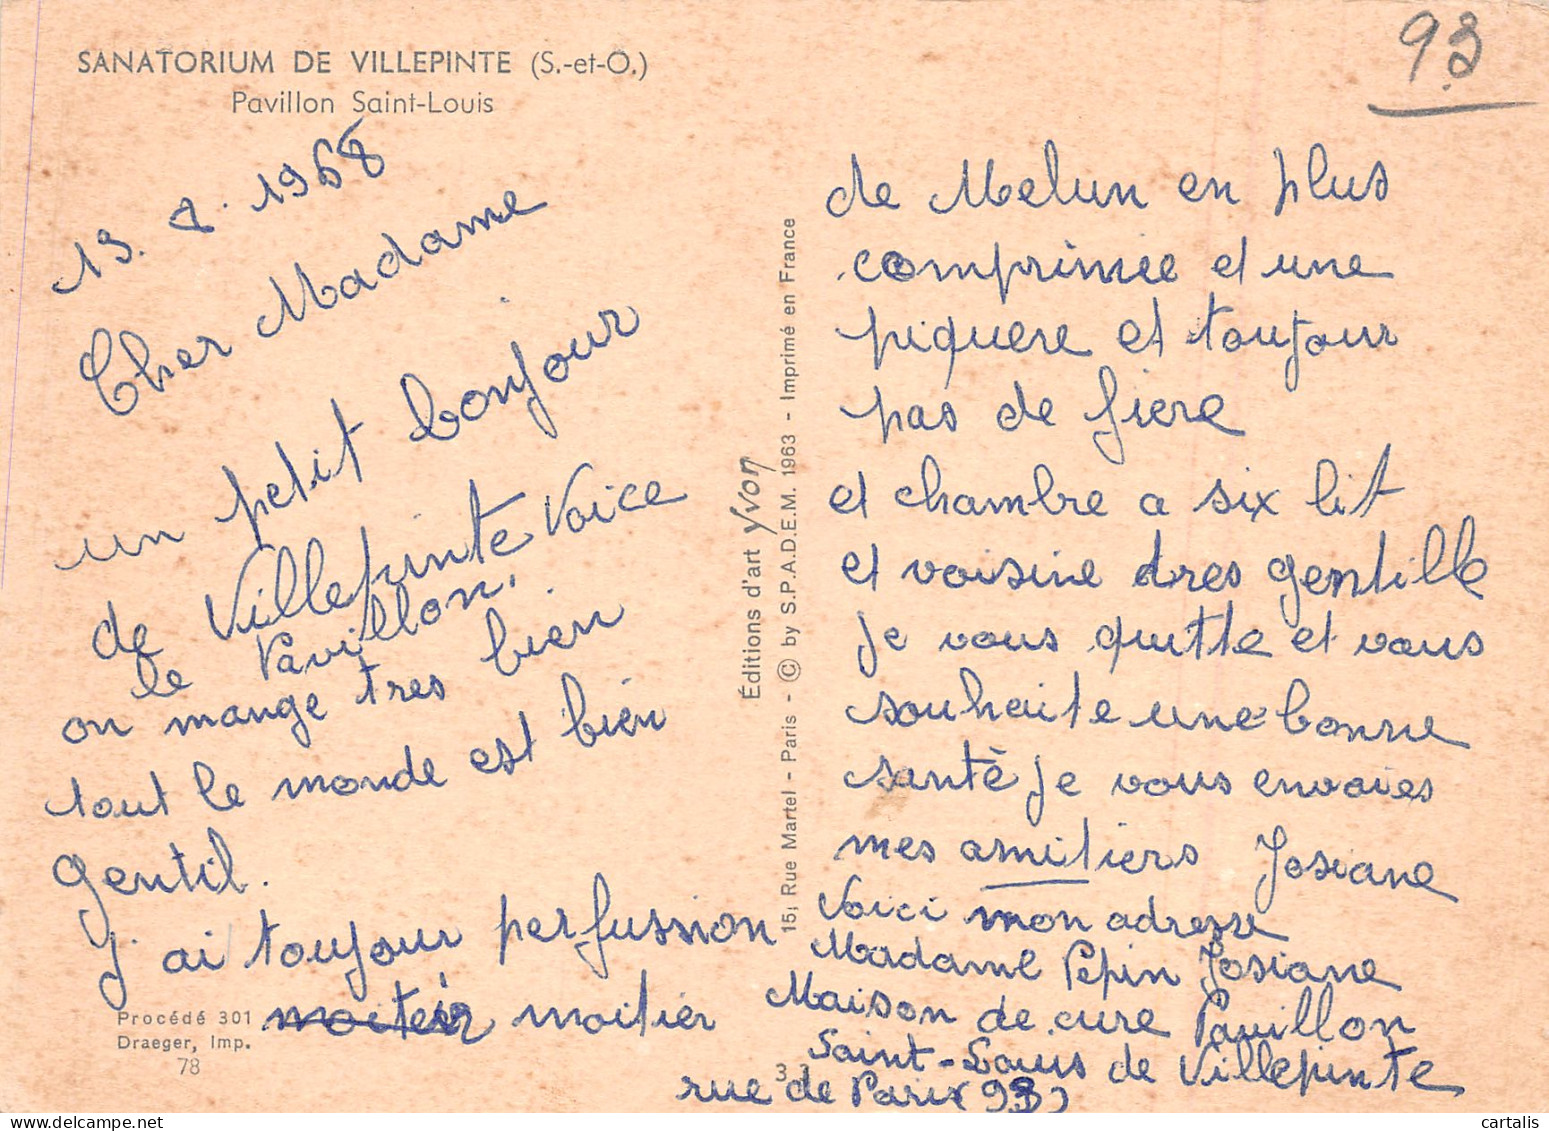 SANATORIUM DE VILLEPINTE (S.-et-O.)
Pavillon Saint-Louis
93
1968
Cher Madame
un petit bonjour
de Villepinte Voice
le Pavillon.
on mange tres bien
tout le monde est bien
gentil.
J'ai toujour perfussion
moitier
de Melun en plus
comprimée et une
piquere et toujour
pas de fiere
et chambre a six lit
et voisine dres gentille
je vous quitte et vous
souhaite une bonne
santé je vous envoies
mes amitiers Josiane
Voici mon adresse
Madame Pepin Josiane
Maison de cure Pavillon
Saint-Louis de Villepinte
rue de Paris (93)
Procédé 301
Draeger, Imp.
78
3
Éditions d'art Yvon
15, Rue Martel - Paris - © by S.P.A.D.E.M. 1963 - Imprimé en France
cartalis